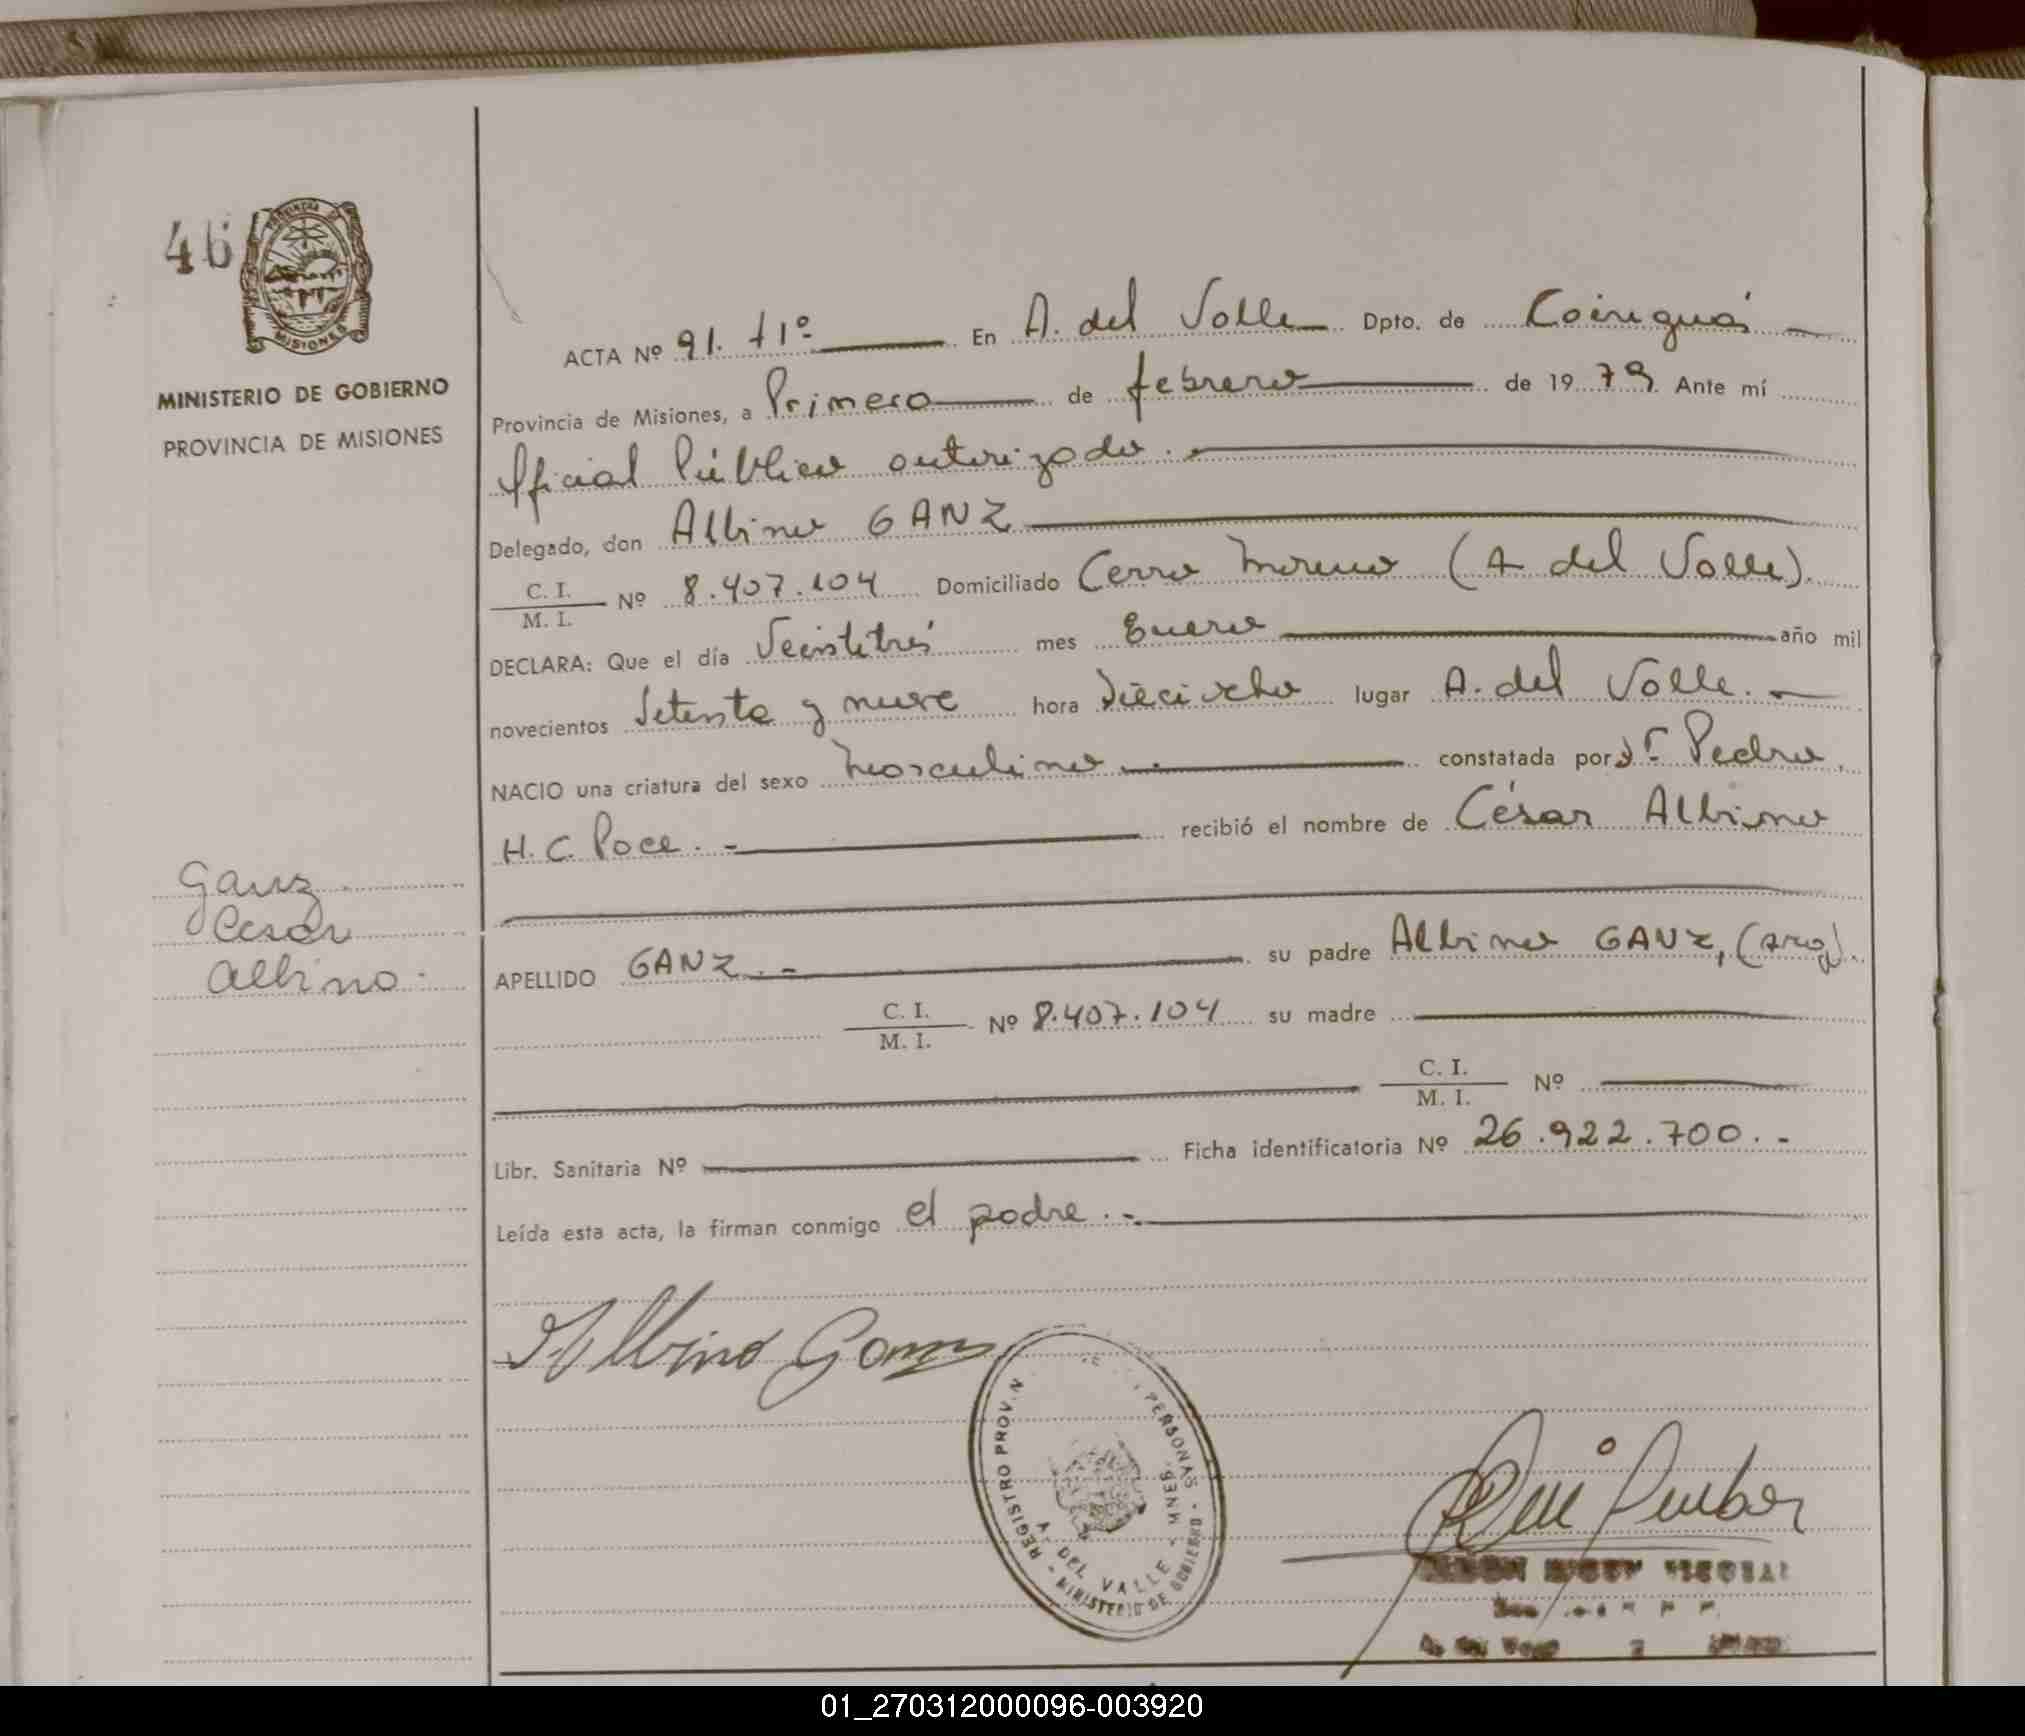 46
PROVINCIA DE
MISIONES
MINISTERIO DE GOBIERNO
PROVINCIA DE MISIONES
ACTA Nº 91. t1º En A. del Valle Dpto. de Cainguás
Provincia de Misiones, a Primero de febrero de 1979 Ante mí
Oficial Público autorizado.
Delegado, don Albino GANZ
C. I.
M. I. Nº 8.407.104 Domiciliado Cerro Moreno (A del Valle).
DECLARA: Que el día Veintitrés mes Enero año mil
novecientos Setenta y nueve hora Dieciocho lugar A. del Valle.
NACIO una criatura del sexo Masculino constatada por Dr. Pedro
H. C. Poce. recibió el nombre de César Albino
Ganz
Cesar
Albino.
APELLIDO GANZ. su padre Albino GANZ, (arg).
C. I.
M. I. Nº 8.407.104 su madre
C. I.
M. I. Nº
Libr. Sanitaria Nº Ficha identificatoria Nº 26.922.700.-
Leída esta acta, la firman conmigo el padre.-
Albino Ganz
REGISTRO PROV. PERSONAS
A. DEL VALLE
MINISTERIO DE GOBIERNO
01_270312000096-003920